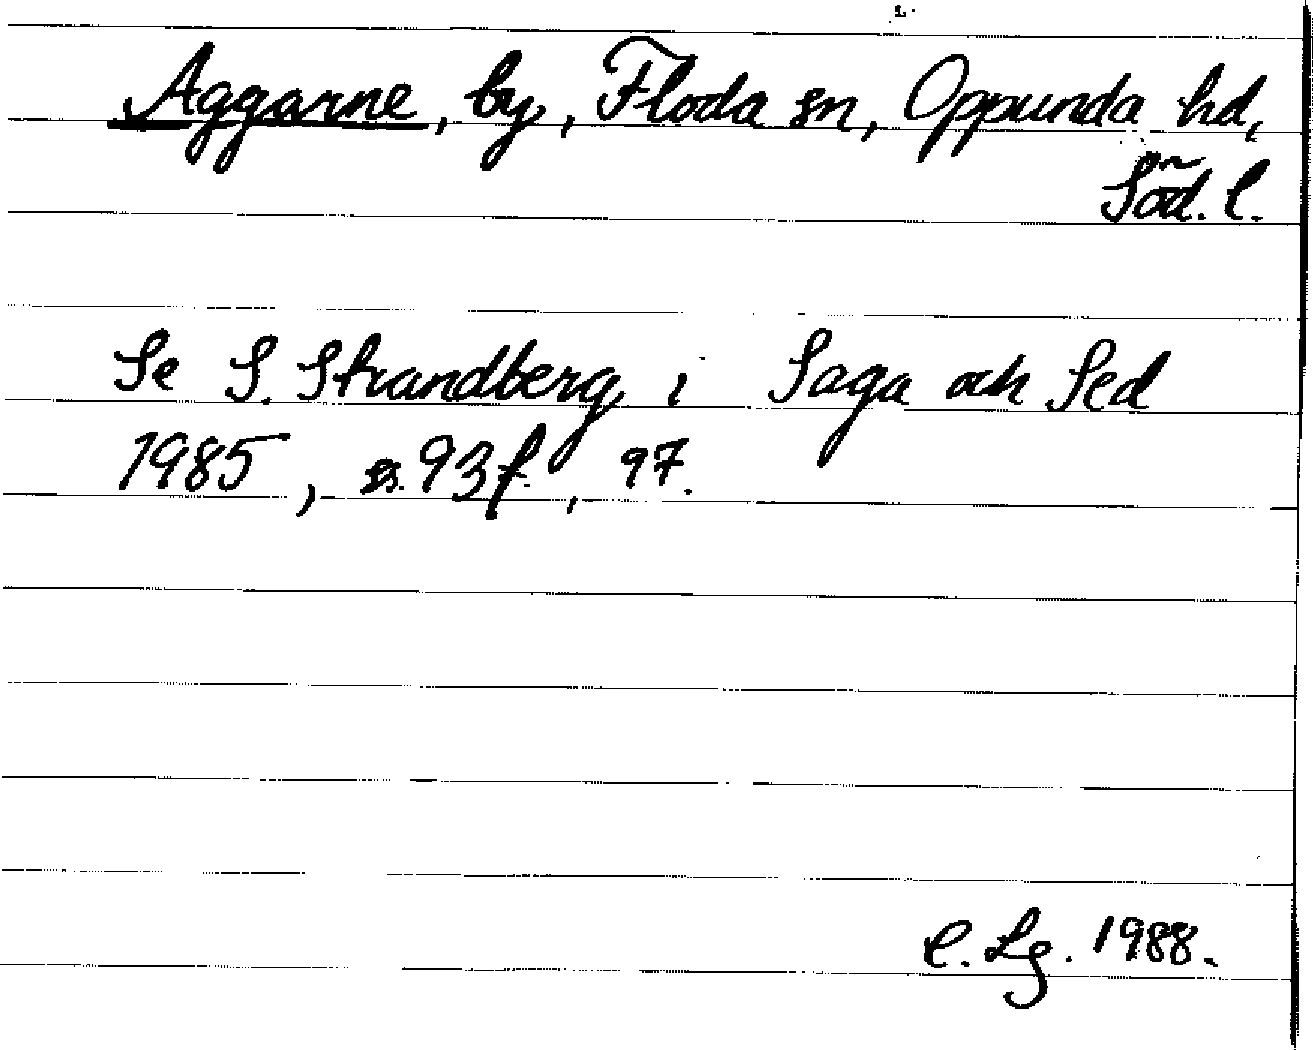 Aggarne, by, Floda sn, Oppunda hd,
Söd. l.
Se S. Strandberg i Saga och Sed
1985, s. 93 f., 97.
C. Lg. 1988.